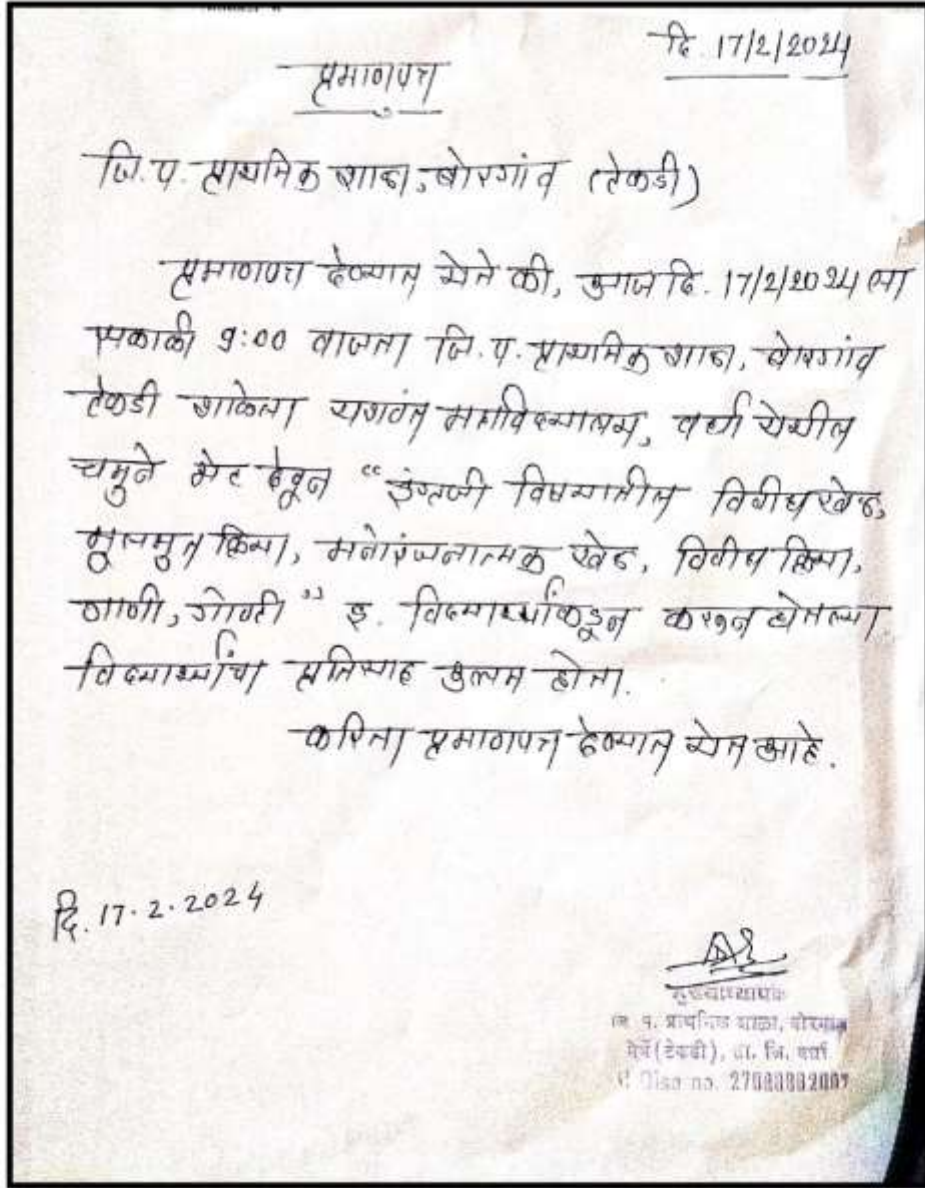 दि. 17/2/2024
प्रमाणपत्र
जि. प. प्राथमिक शाळा, बोरगांव (टेकडी)
प्रमाणपत्र देण्यात येते की, आज दि. 17/2/2024 ला
सकाळी 9:00 वाजता जि. प. प्राथमिक शाळा, बोरगांव
टेकडी शाळेला यशवंत महाविद्यालय, वर्धा येथील
चमुने भेट देवून “इंग्रजी विषयातील विवीध खेळ,
मुलभुत क्रिया, मनोरंजनात्मक खेळ, विवीध क्रिया,
गाणी, गोष्टी” इ. विद्यार्थ्यांकडून करून घेतल्या
विद्यार्थ्यांचा प्रतिसाद उत्तम होता.
करिता प्रमाणपत्र देण्यात येत आहे.
दि. 17.2.2024
मुख्याध्यापक
जि. प. प्राथमिक शाळा, बोरगांव
मेघे (टेकडी), ता. जि. वर्धा